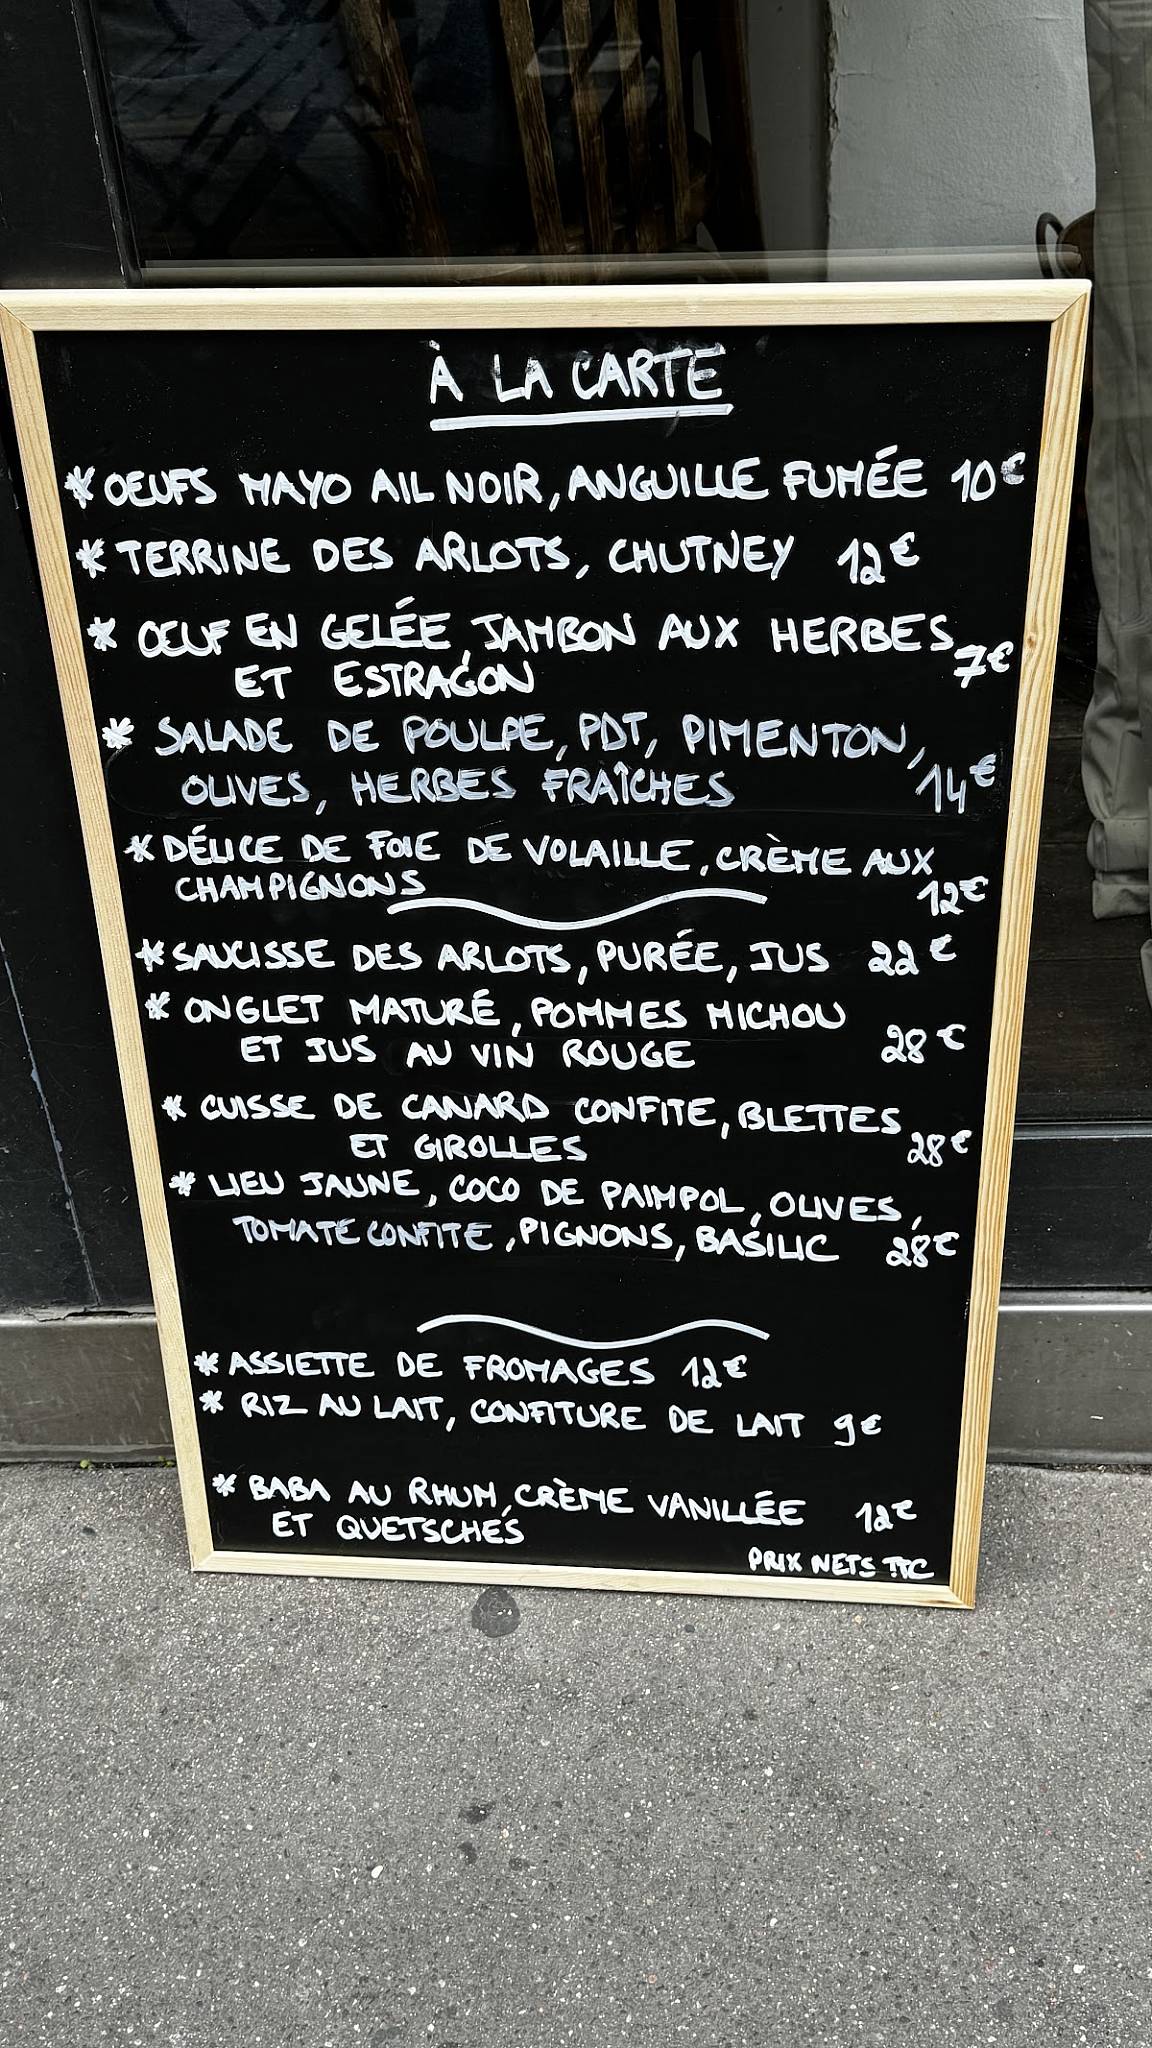 À LA CARTE
* OEUFS MAYO AIL NOIR, ANGUILLE FUMÉE 10€
* TERRINE DES ARLOTS, CHUTNEY 12€
* OEUF EN GELÉE, JAMBON AUX HERBES
ET ESTRAGON 7€
* SALADE DE POULPE, PDT, PIMENTON,
OLIVES, HERBES FRAÎCHES 14€
* DÉLICE DE FOIE DE VOLAILLE, CRÈME AUX
CHAMPIGNONS 12€
* SAUCISSE DES ARLOTS, PURÉE, JUS 22€
* ONGLET MATURÉ, POMMES MICHOU
ET JUS AU VIN ROUGE 28€
* CUISSE DE CANARD CONFITE, BLETTES
ET GIROLLES 28€
* LIEU JAUNE, COCO DE PAIMPOL, OLIVES,
TOMATE CONFITE, PIGNONS, BASILIC 28€
* ASSIETTE DE FROMAGES 12€
* RIZ AU LAIT, CONFITURE DE LAIT 9€
* BABA AU RHUM, CRÈME VANILLÉE 12€
ET QUETSCHES
PRIX NETS TTC